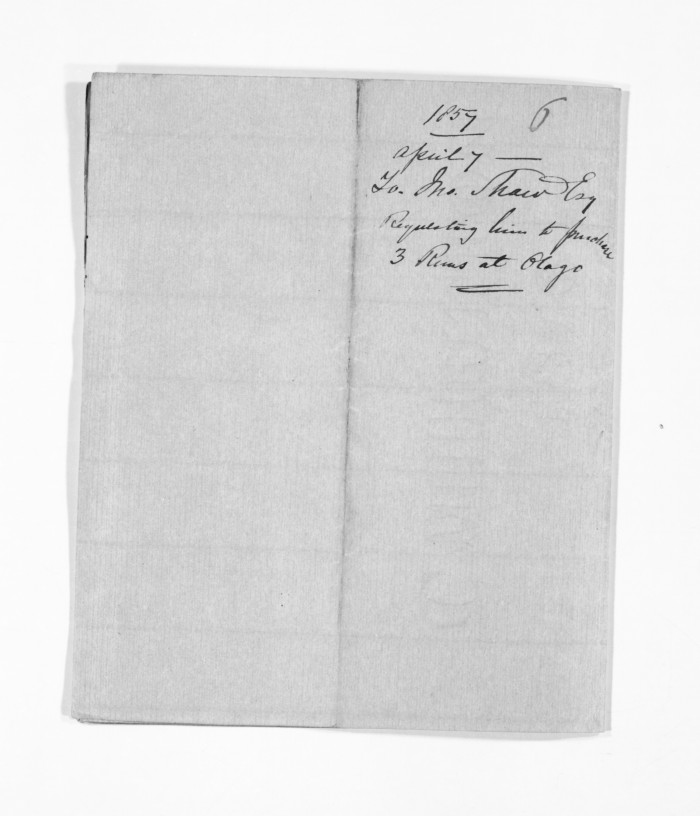 1857 6
April 7 —
To Jno. Shaw Esq
Requesting him to purchase
3 Runs at Otago